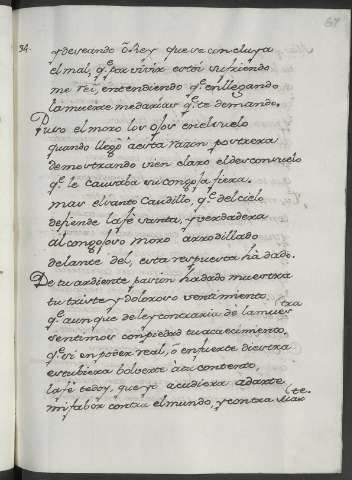 34. y deseando ô Rey que se concluya
el mal, q.e por vivir estoi sufriendo
me vei, entendiendo q.e en llegando
la muerte me darias q.e te demando.
Puso el moro los ojos en el suelo
quando llegò a esta razon postrera
demostrando vien claro el desconsuelo
q.e le causaba su congoja fiera.
mas el santo Caudillo, q.e del cielo
defiende la fè santa, y verdadera
al congojoso moro arrodillado
delante del, esta respuesta hà dado.
De tu ardiente pasion ha dado muestra
tu triste y doloroso sentimiento.
q.e aunque de ley contraria de la nues(tra
sentimos con piedad tu acaecimiento,
q.e si en poder real, ò en fuerte diestra
estubiera bolverte à tu contento,
la fè te doy, que yo acudiera a darte
mi fabor contra el mundo, y contra Mar(te.